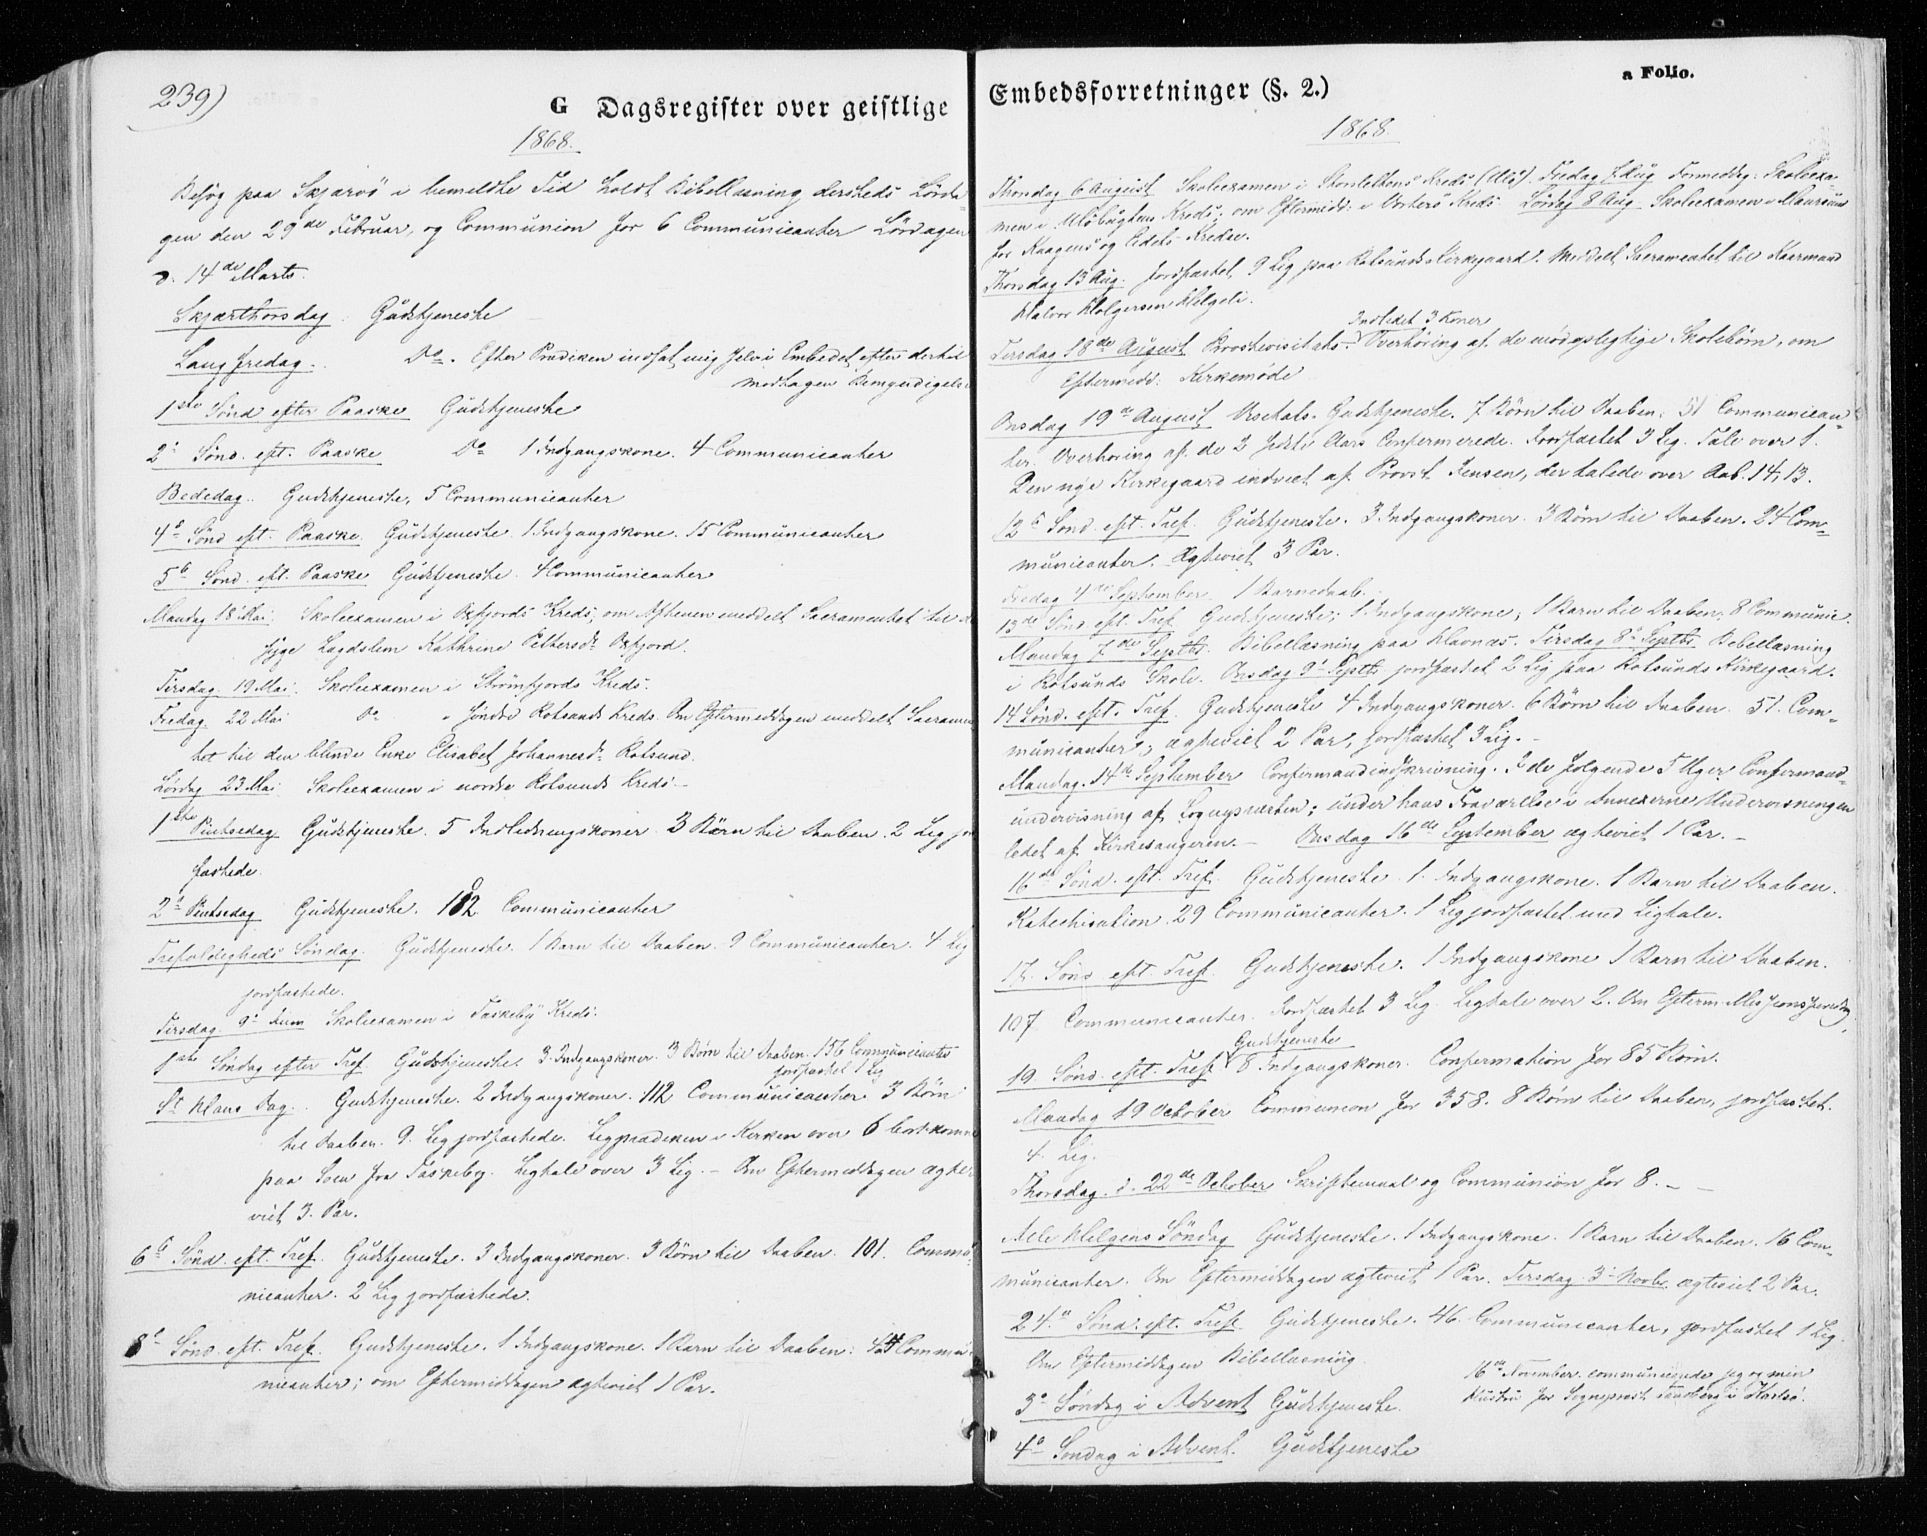 239)
G Dagsregister over geistlige
1868.
Besøg paa Skjærvø i bemeldte Tid holdt Bibellæsning dersteds Lørda-
gen den 29de Februar, og Communion for 6 Communicanter Lørdagen
d. 14de Marts.
Skjærthorsdag. Gudstjeneste
Langfredag. Do. Efter Prædiken indsat mig selv i Embedet efter dertil
modtagen Bemyndigelse
1ste Sönd efter Paaske Gudstjeneste
2' Sönd. eft. Paaske Do 1 Indgangskone. 4 Communicanter
Bededag. Gudstjeneste, 5 Communicanter
4e Sönd eft. Paaske Gudstjeneste. 1 Indgangskone. 15 Communicanter
5e Sönd. eft. Paaske Gudstjeneste. 4 Communicanter
Mandag 18' Mai. Skoleexamen i Oxfjords Kreds; om Aftenen meddelt Sacramentet til d
syge Lægdslem Kathrine Pettersdr Oxfjord.
Tirsdag 19 Mai. Skoleexamen i Strömfjords Kreds.
Fredag 22 Mai Do " söndre Rotsunds Kreds. Om Eftermiddagen meddelt Sacramen
tet til den blinde Enke Elisabet Johannesdr Rotsund.
Lördag 23 Mai Skoleexamen i nordre Rotsunds Kreds.
1ste Pintsedag Gudstjeneste. 5 Indledningskoner. 3 Börn til Daaben. 2 Lig jor
fæstede.
2e Pintsedag Gudstjeneste. 102 Communicanter
Trefoldigheds Söndag. Gudstjeneste. 1 Barn til Daaben. 9 Communicanter. 4 Lig
jordfæstede.
Tirsdag 9' Juni Skoleexamen i Taskeby Kreds.
1ste Söndag efter Tref. Gudstjeneste. 3 Indgangskoner. 3 Börn til Daaben. 156 Communicanter
jordfæstet 1 Lig
St Hans Dag. Gudstjeneste. 2 Indgangskoner. 112 Communicanter 3 Börn
til Daaben. 9. Lig jordfæstede. Ligprædiken i Kirken over 6 bortkomne
paa Söen fra Taskeby. Ligtale over 3 Lig. – Om Eftermiddagen ægte-
viet 3. Par.
6e Sönd. eft. Tref. Gudstjeneste. 3 Indgangskoner. 3 Börn til Daaben. 101. Commu-
nicanter. 2 Lig jordfæstede.
8e Sönd. eft. Tref. Gudstjeneste. 1 Indgangskone. 1 Barn til Daaben: Commu-
nicanter; om Eftermiddagen ægteviet 1 Par.
a Folio.
Embedsforretninger (§. 2.)
1868.
Thorsdag 6 August Skoleexamen i Kreds (Ulö). Fredag 7 Aug Formiddag: Skoleexa-
men i Ulöbugtens Kreds; om Eftermidd: i Kreds Lördag 8 Aug. Skoleexamen i Maursund
for Kaagens og Kredse.
Thorsdag 13 Aug: Jordfæstet 9 Lig paa Rotsunds Kirkegaard. Meddelt Sacramentet til
Halvor Holgersen Helgeli.
Indledet 3 Koner
Tirsdag 18de August Provstevisitats. Overhöring af de mödepligtige Skolebörn, om
Eftermidd: Kirkemöde
Onsdag 19de August Visitats-Gudstjeneste. 7 Börn til Daaben. 51 Communican-
ter. Overhöring af de 2 sidste Aars Confirmerede. Jordfæstet 3 Lig. Tale over 1.
Den nye Kirkegaard indviet af Provst Jensen, der talede over Aab. 14, 13.
12e Sönd. eft. Tref. Gudstjeneste. 3 Indgangskoner. 3 Börn til Daaben. 24 Com-
municanter. Ægteviet 3 Par.
Fredag 4de September. 1 Barnedaab.
13de Sönd eft. Tref. Gudstjeneste; 1 Indgangskone; 1 Barn til Daaben; 8 Communic.
Mandag 7de Septbr. Bibellæsning paa Havnæs. Tirsdag 8' Septbr. Bibellæsning
i Rotsunds Skole. Onsdag 9' Septbr jordfæstet 2 Lig paa Rotsunds Kirkegaard.
14 Sönd. eft. Tref. Gudstjeneste 4 Indgangskoner. 6 Börn til Daaben. 51. Com-
municanter; ægteviet 2 Par, jordfæstet 3 Lig. –
Mandag. 14de September Confirmandindskrivning. I de fölgende 5 Uger Confirmand-
undervisning af Sognepræsten; under hans Fraværelse i Annexerne Undervisningen
ledet af Kirkesangeren. – Onsdag 16de September ægteviet 1 Par. –
16de Sönd. eft. Tref. Gudstjeneste. 1. Indgangskone. 1 Barn til Daaben.
Katechisation. 29 Communicanter. 1 Lig jordfæstet med Ligtale.
17. Sönd eft. Tref. Gudstjeneste. 1 Indgangskone 1 Barn til Daaben.
107 Communicanter. Jordfæstet 3 Lig. Ligtale over 2. Om Efterm.
Gudstjeneste
19. Sönd. eft. Tref. 8 Indgangskoner. Confirmation for 85 Börn.
Mandag 19 October Communion for 358. 8 Börn til Daaben, jordfæstet.
4. Lig.
Thorsdag. d. 22de October Skriftemaal og Communion for 8. –
Alle Helgens Söndag Gudstjeneste. 1 Indgangskone. 1 Barn til Daaben. 16 Com-
municanter. Om Eftermiddagen ægteviet 1 Par. Tirsdag 3' Novbr. ægteviet 2 Par.
24.e Sönd. eft. Tref. Gudstjeneste. 46. Communicanter, jordfæstet 1 Lig.
Om Eftermiddagen Bibellæsning.
16de November communicerede jeg og min
Hustru for Sogneprest i Karlsö.
3e Söndag i Advent Gudstjeneste.
4e Söndag i Advent. Gudstjeneste